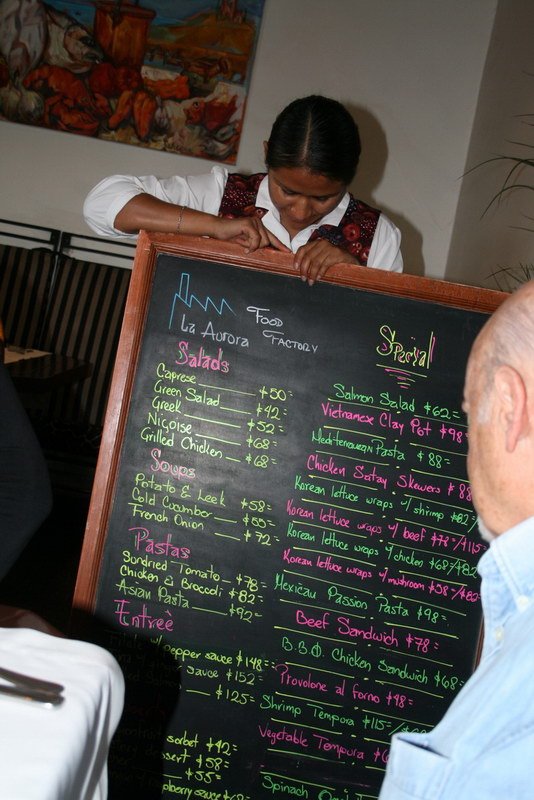 La Aurora
FOOD
FACTORY
Salads
Caprese $50=
Green Salad $42=
Greek $52=
Niçoise $68=
Grilled Chicken $68=
Soups
Potato & Leek $58=
Cold Cucumber $55=
French Onion $72=
Pastas
Sundried Tomato $78=
Chicken & Broccoli $82=
Asian Pasta $92=
Entreé
pepper sauce $148=
sauce $152=
$125=
sorbet $42=
$58=
$55=
sauce
Special
Salmon Salad $62=
Vietnamese Clay Pot $98=
Mediterranean Pasta $88=
Chicken Satay Skewers $88
Korean lettuce wraps w/ shrimp $82/
Korean lettuce wraps w/ beef $78=/$115=
Korean lettuce wraps w/ chicken $68/$82
Korean lettuce wraps w/ mushroom $58=/$82=
Mexican Passion Pasta $98=
Beef Sandwich $78=
B.B.Q. Chicken Sandwich $68=
Provolone al forno $48=
Shrimp Tempura $115=/
Vegetable Tempura
Spinach